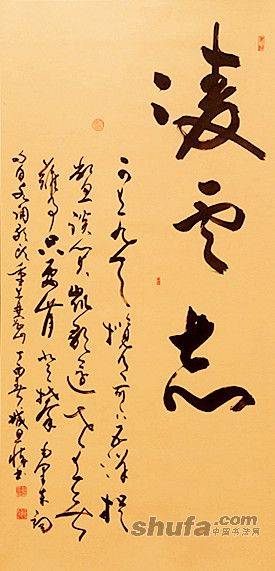 凌云志
可上九天揽月可下五洋捉
鳖谈笑凯歌还世上无
难事只要肯登攀
重上井冈山丁酉
shufa.com
中国书法网